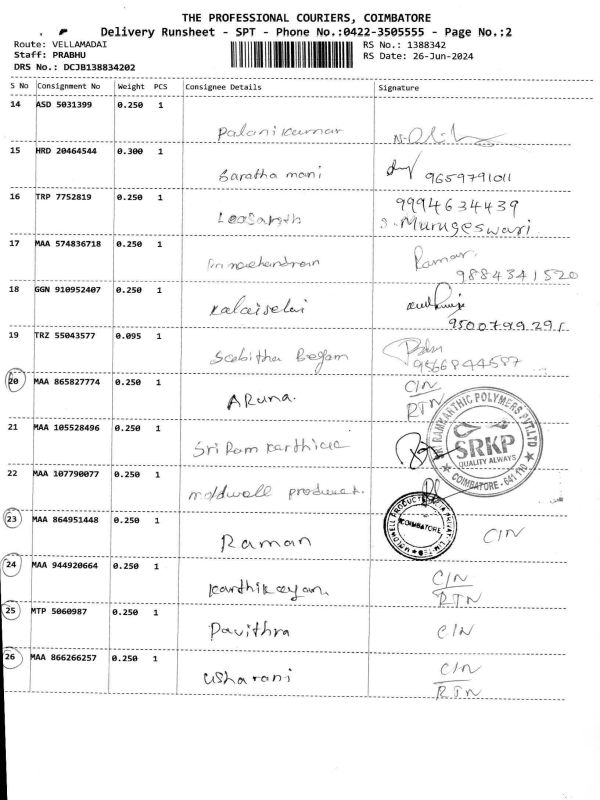 THE PROFESSIONAL COURIERS, COIMBATORE
Delivery Runsheet - SPT - Phone No.:0422-3505555 - Page No.:2
Route: VELLAMADAI RS No.: 1388342
Staff: PRABHU RS Date: 26-Jun-2024
DRS No.: DCJB138834202
S No Consignment No Weight PCS Consignee Details Signature
14 ASD 5031399 0.250 1
Palanikumar
15 HRD 20464544 0.300 1
Baratha mani 9659791011
16 TRP 7752819 0.250 1 9994634439
S. Murugeswari
17 MAA 574836718 0.250 1
Raman
9884341520
18 GGN 910952407 0.250 1
Kalaiselvi
9500799291
19 TRZ 55043577 0.095 1
Sabitha Begam 9566844587
20 MAA 865827774 0.250 1 C/N
ARuna. RTN
21 MAA 105528496 0.250 1
Sri Ram Karthicc
SRI RAMKARTHIC POLYMERS PVT.LTD
SRKP
QUALITY ALWAYS
COIMBATORE - 641 110
22 MAA 107790077 0.250 1
moldwell product.
COIMBATORE
23 MAA 864951448 0.250 1
Raman C/N
24 MAA 944920664 0.250 1 C/N
Karthikeyan. RTN
25 MTP 5060987 0.250 1
Pavithra C/N
26 MAA 866266257 0.250 1 C/N
Usharani RTN